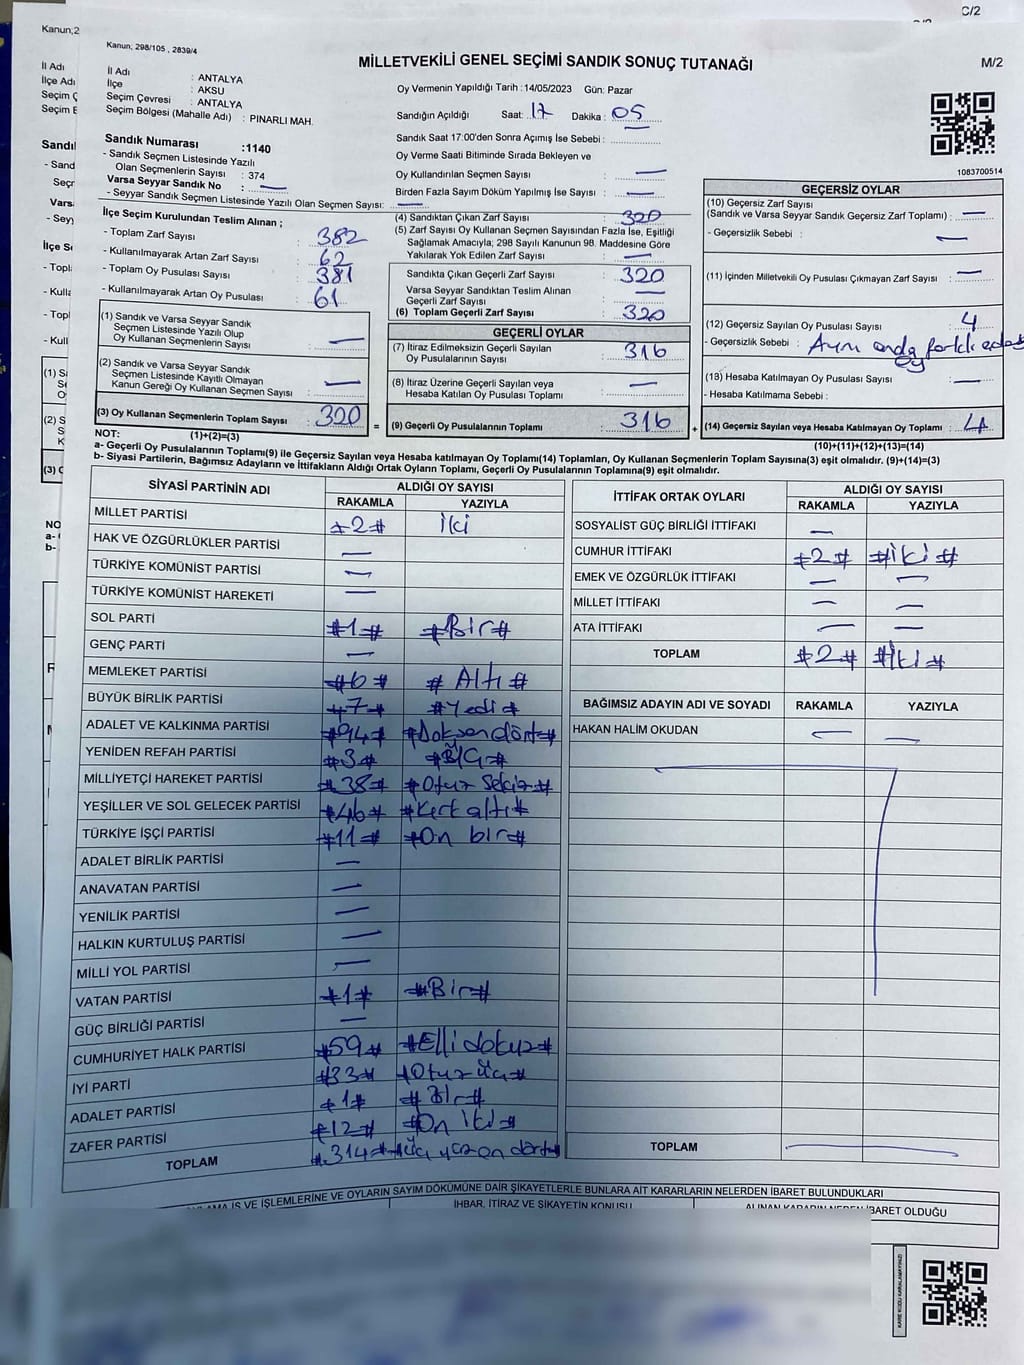 C/2
Kanun;2
Kanun; 298/105 , 2839/4
MİLLETVEKİLİ GENEL SEÇİMİ SANDIK SONUÇ TUTANAĞI
M/2
İl Adı : ANTALYA
İlçe : AKSU
Seçim Çevresi : ANTALYA
Seçim Bölgesi (Mahalle Adı) : PINARLI MAH.
Oy Vermenin Yapıldığı Tarih : 14/05/2023 Gün: Pazar
Sandığın Açıldığı Saat: 17 Dakika : 05
Sandık Saat 17:00'den Sonra Açımış İse Sebebi :
Oy Verme Saati Bitiminde Sırada Bekleyen ve
Oy Kullandırılan Seçmen Sayısı : —
Birden Fazla Sayım Döküm Yapılmış İse Sayısı : —
1083700514
Sandık Numarası :1140
- Sandık Seçmen Listesinde Yazılı
Olan Seçmenlerin Sayısı : 374
Varsa Seyyar Sandık No : —
- Seyyar Sandık Seçmen Listesinde Yazılı Olan Seçmen Sayısı: —
İlçe Seçim Kurulundan Teslim Alınan ;
- Toplam Zarf Sayısı : 382
- Kullanılmayarak Artan Zarf Sayısı : 62
- Toplam Oy Pusulası Sayısı : 381
- Kullanılmayarak Artan Oy Pusulası : 61
(1) Sandık ve Varsa Seyyar Sandık
Seçmen Listesinde Yazılı Olup
Oy Kullanan Seçmenlerin Sayısı : —
(2) Sandık ve Varsa Seyyar Sandık
Seçmen Listesinde Kayıtlı Olmayan
Kanun Gereği Oy Kullanan Seçmen Sayısı : —
(3) Oy Kullanan Seçmenlerin Toplam Sayısı : 320
(4) Sandıktan Çıkan Zarf Sayısı : 320
(5) Zarf Sayısı Oy Kullanan Seçmen Sayısından Fazla İse, Eşitliği
Sağlamak Amacıyla; 298 Sayılı Kanunun 98. Maddesine Göre
Yakılarak Yok Edilen Zarf Sayısı : —
Sandıkta Çıkan Geçerli Zarf Sayısı : 320
Varsa Seyyar Sandıktan Teslim Alınan
Geçerli Zarf Sayısı : —
(6) Toplam Geçerli Zarf Sayısı : 320
GEÇERLİ OYLAR
(7) İtiraz Edilmeksizin Geçerli Sayılan
Oy Pusulalarının Sayısı : 316
(8) İtiraz Üzerine Geçerli Sayılan veya
Hesaba Katılan Oy Pusulası Toplamı : —
= (9) Geçerli Oy Pusulalarının Toplamı : 316 +
GEÇERSİZ OYLAR
(10) Geçersiz Zarf Sayısı
(Sandık ve Varsa Seyyar Sandık Geçersiz Zarf Toplamı) : —
- Geçersizlik Sebebi : —
(11) İçinden Milletvekili Oy Pusulası Çıkmayan Zarf Sayısı : —
(12) Geçersiz Sayılan Oy Pusulası Sayısı : 4
- Geçersizlik Sebebi : Aynı anda farklı
oy
(13) Hesaba Katılmayan Oy Pusulası Sayısı : —
- Hesaba Katılmama Sebebi :
(14) Geçersiz Sayılan veya Hesaba Katılmayan Oy Toplamı : 4
NOT: (1)+(2)=(3)
(10)+(11)+(12)+(13)=(14)
a- Geçerli Oy Pusulalarının Toplamı(9) ile Geçersiz Sayılan veya Hesaba katılmayan Oy Toplamı(14) Toplamları, Oy Kullanan Seçmenlerin Toplam Sayısına(3) eşit olmalıdır. (9)+(14)=(3)
b- Siyasi Partilerin, Bağımsız Adayların ve İttifakların Aldığı Ortak Oyların Toplamı, Geçerli Oy Pusulalarının Toplamına(9) eşit olmalıdır.
SİYASİ PARTİNİN ADI ALDIĞI OY SAYISI
RAKAMLA YAZIYLA
MİLLET PARTİSİ #2# İki
HAK VE ÖZGÜRLÜKLER PARTİSİ —
TÜRKİYE KOMÜNİST PARTİSİ —
TÜRKİYE KOMÜNİST HAREKETİ —
SOL PARTİ #1# #Bir#
GENÇ PARTİ —
MEMLEKET PARTİSİ #6# # Altı #
BÜYÜK BİRLİK PARTİSİ #7# #Yedi#
ADALET VE KALKINMA PARTİSİ #94# #Doksan dört#
YENİDEN REFAH PARTİSİ #3# #Üç#
MİLLİYETÇİ HAREKET PARTİSİ #38# #Otuz Sekiz#
YEŞİLLER VE SOL GELECEK PARTİSİ #46# #Kırk altı#
TÜRKİYE İŞÇİ PARTİSİ #11# #On bir#
ADALET BİRLİK PARTİSİ —
ANAVATAN PARTİSİ —
YENİLİK PARTİSİ —
HALKIN KURTULUŞ PARTİSİ —
MİLLİ YOL PARTİSİ —
VATAN PARTİSİ #1# #Bir#
GÜÇ BİRLİĞİ PARTİSİ —
CUMHURİYET HALK PARTİSİ #59# #Elli dokuz#
İYİ PARTİ #33# #Otuz üç#
ADALET PARTİSİ #1# #Bir#
ZAFER PARTİSİ #12# #On iki#
TOPLAM #314# #Üç yüz on dört#
İTTİFAK ORTAK OYLARI ALDIĞI OY SAYISI
RAKAMLA YAZIYLA
SOSYALİST GÜÇ BİRLİĞİ İTTİFAKI —
CUMHUR İTTİFAKI #2# #İki#
EMEK VE ÖZGÜRLÜK İTTİFAKI — —
MİLLET İTTİFAKI — —
ATA İTTİFAKI — —
TOPLAM #2# #İki#
BAĞIMSIZ ADAYIN ADI VE SOYADI RAKAMLA YAZIYLA
HAKAN HALİM OKUDAN — —
TOPLAM —
İŞ VE İŞLEMLERİNE VE OYLARIN SAYIM DÖKÜMÜNE DAİR ŞİKAYETLERLE BUNLARA AİT KARARLARIN NELERDEN İBARET BULUNDUKLARI
İHBAR, İTİRAZ VE ŞİKAYETİN KONUSU
ALINAN KARARIN NEDEN İBARET OLDUĞU
KARE KODU KARALAMAYINIZ!